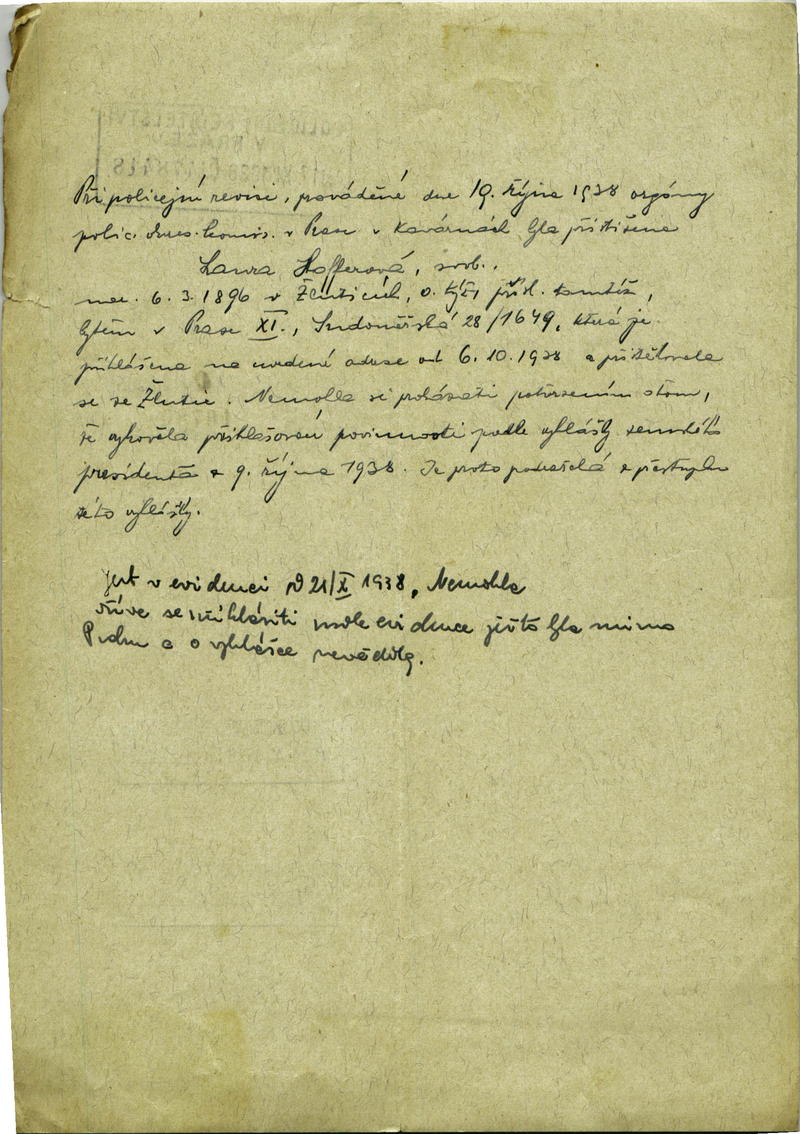 Při policejní revisi, prováděné dne 19. října 1938 orgány
polic. okres. komis. v Praze v kavárnách byla přistižena
Laura Hofferová, svob.,
nar. 6. 3. 1896 v Žluticích, o. týž, přísl. tamtéž,
bytem v Praze XI., 28/1649, která je
přihlášena na uvedené adrese od 6.10.1938 a přistěhovala
se ze Žlutic. Nemohla se prokázati potvrzením o tom,
že vykonala přihlašovací povinnosti podle vyhlášky zemského
presidenta z 9. října 1938. Je proto podezřelá z přestupku
této vyhlášky.
Jest v evidenci od 21/X 1938, Nemohla
dříve se přihlásiti podle evidence ješto byla mimo
Prahu a o vyhlášce nevěděla.